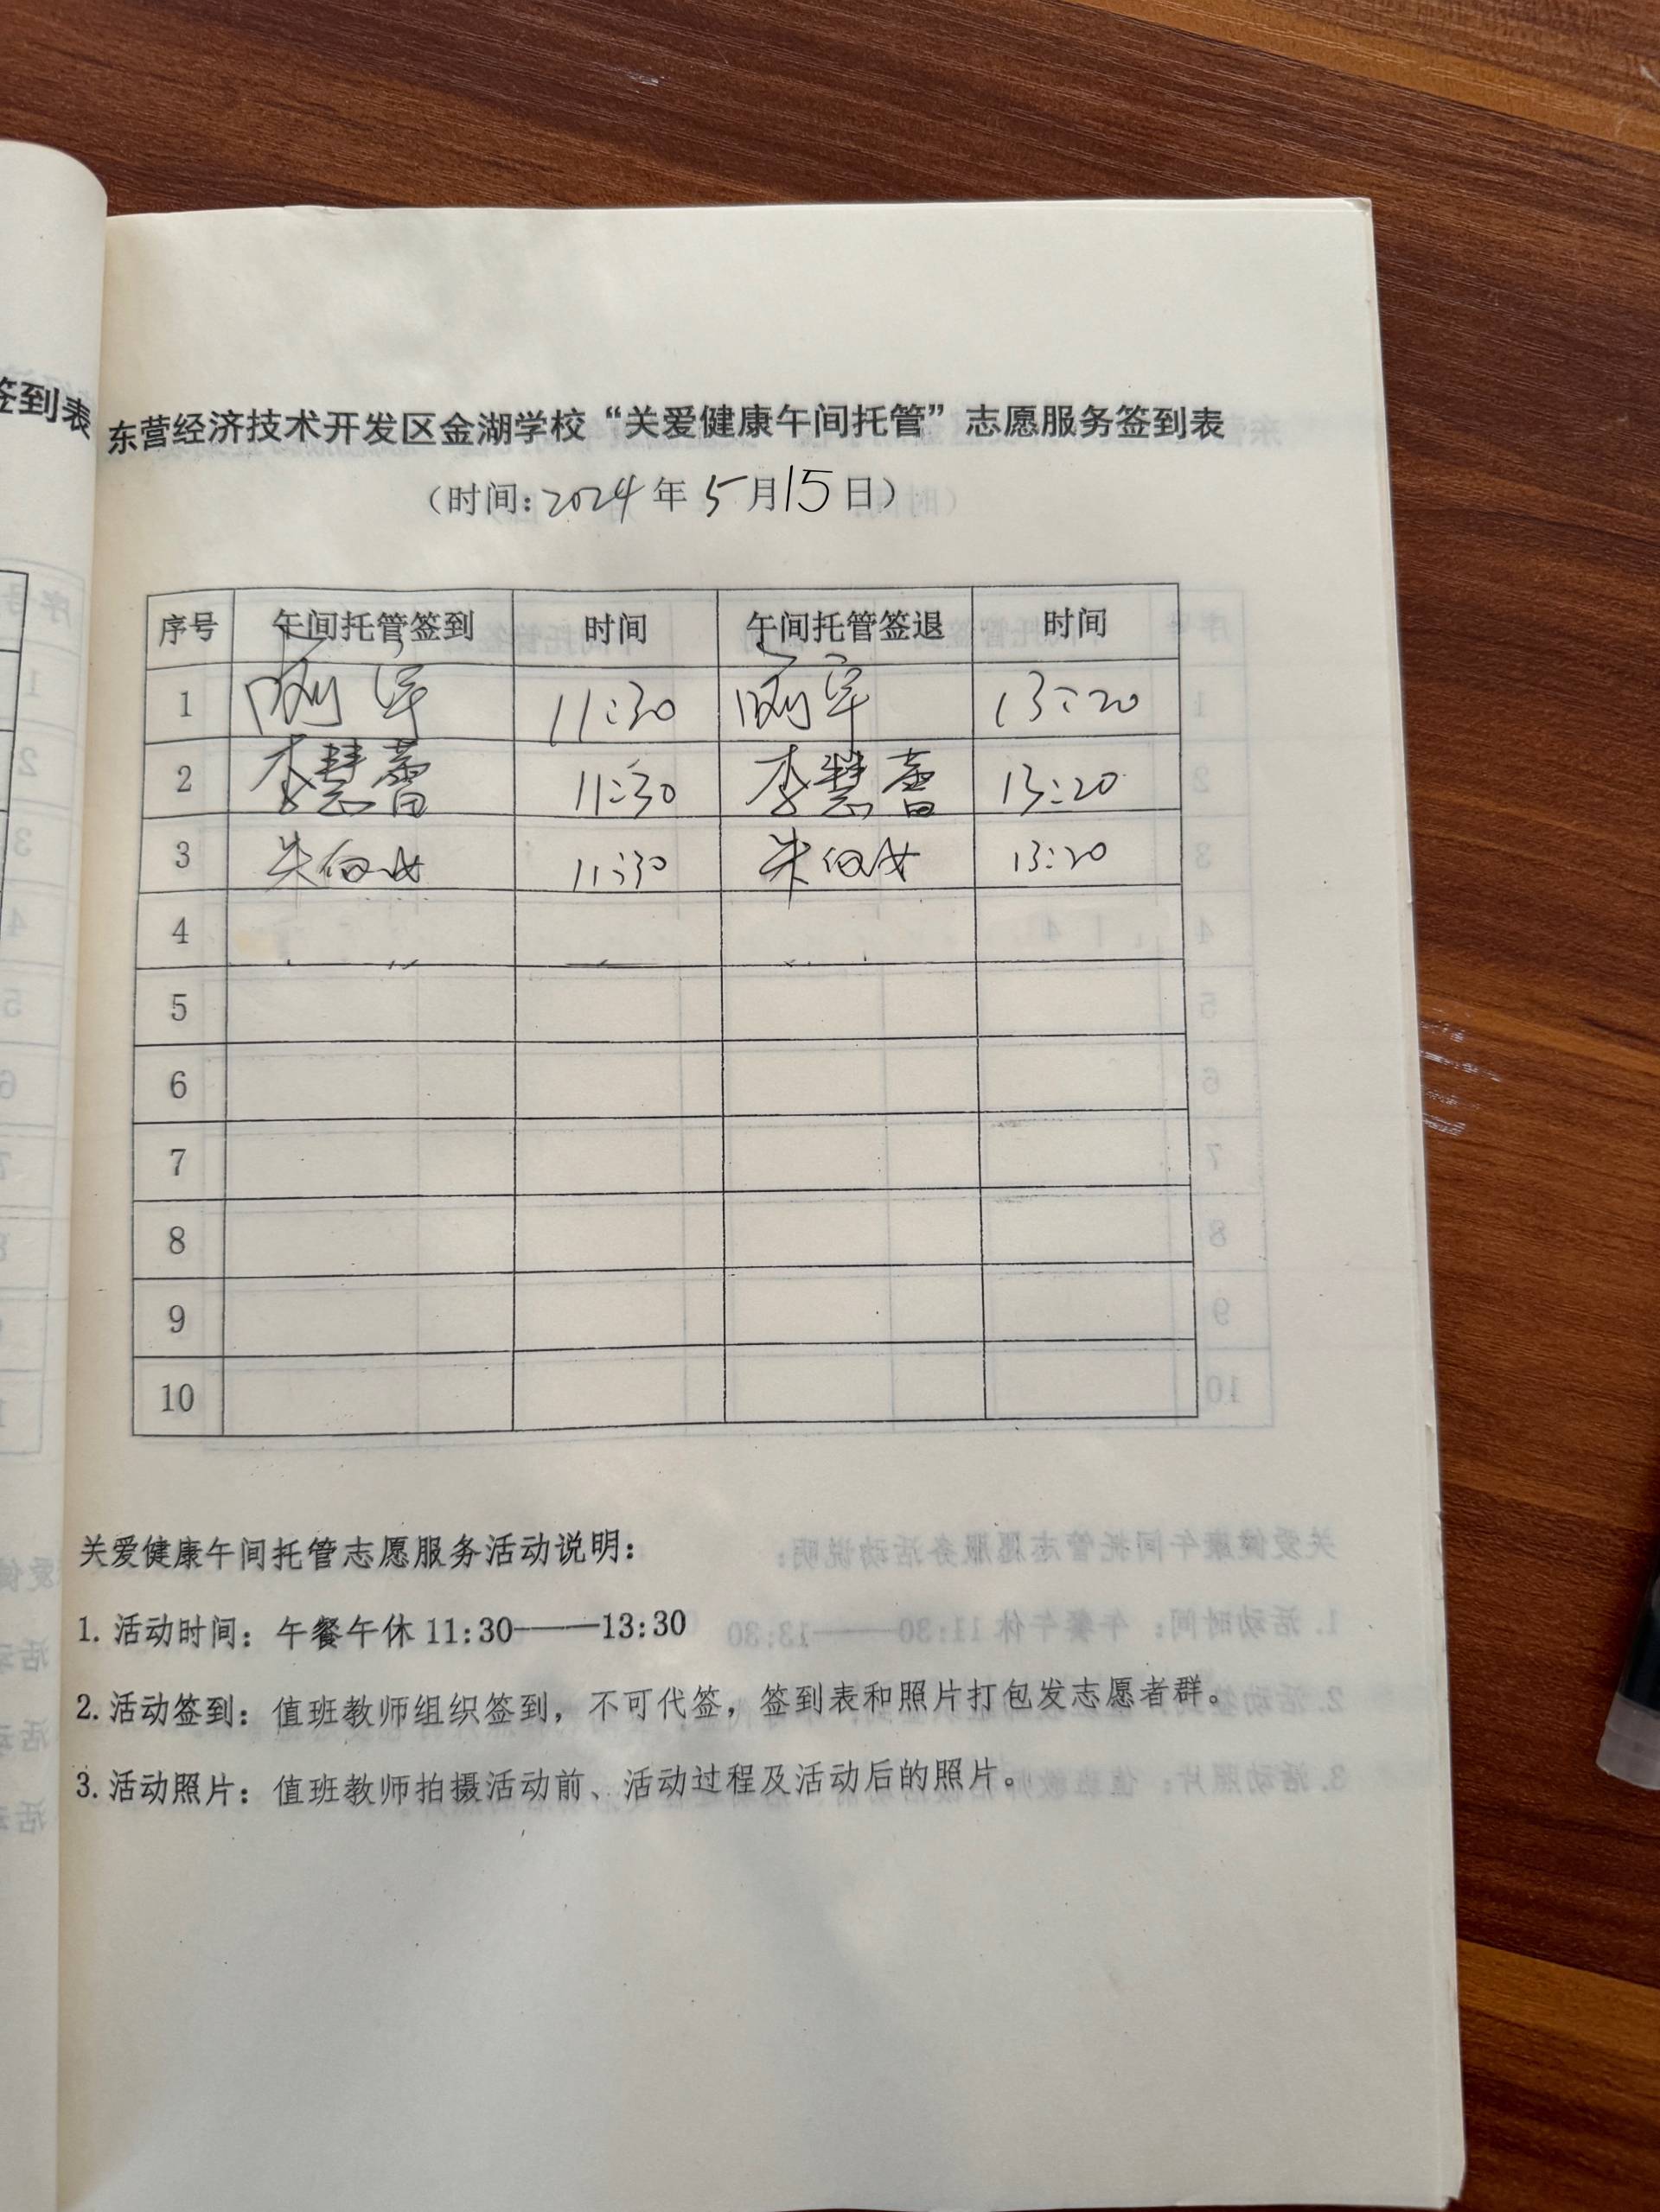 东营经济技术开发区金湖学校“关爱健康午间托管”志愿服务签到表
（时间：2024年5月15日）
序号 午间托管签到 时间 午间托管签退 时间
1 11:30 13:20
2 李慧蕾 11:30 李慧蕾 13:20
3 朱 11:30 朱 13:20
4
5
6
7
8
9
10
关爱健康午间托管志愿服务活动说明：
1. 活动时间：午餐午休 11:30——13:30
2. 活动签到：值班教师组织签到，不可代签，签到表和照片打包发志愿者群。
3. 活动照片：值班教师拍摄活动前、活动过程及活动后的照片。
签到表